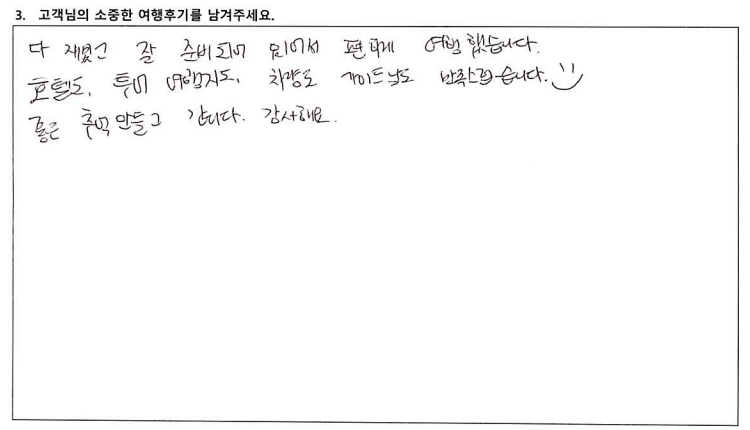 3. 고객님의 소중한 여행후기를 남겨주세요.
다 재밌고 잘 준비되어 있어서 편하게 여행 했습니다.
호텔도, 투어 여행지도, 차량도 가이드님도 만족스럽습니다. :)
좋은 추억 만들고 갑니다. 감사해요.